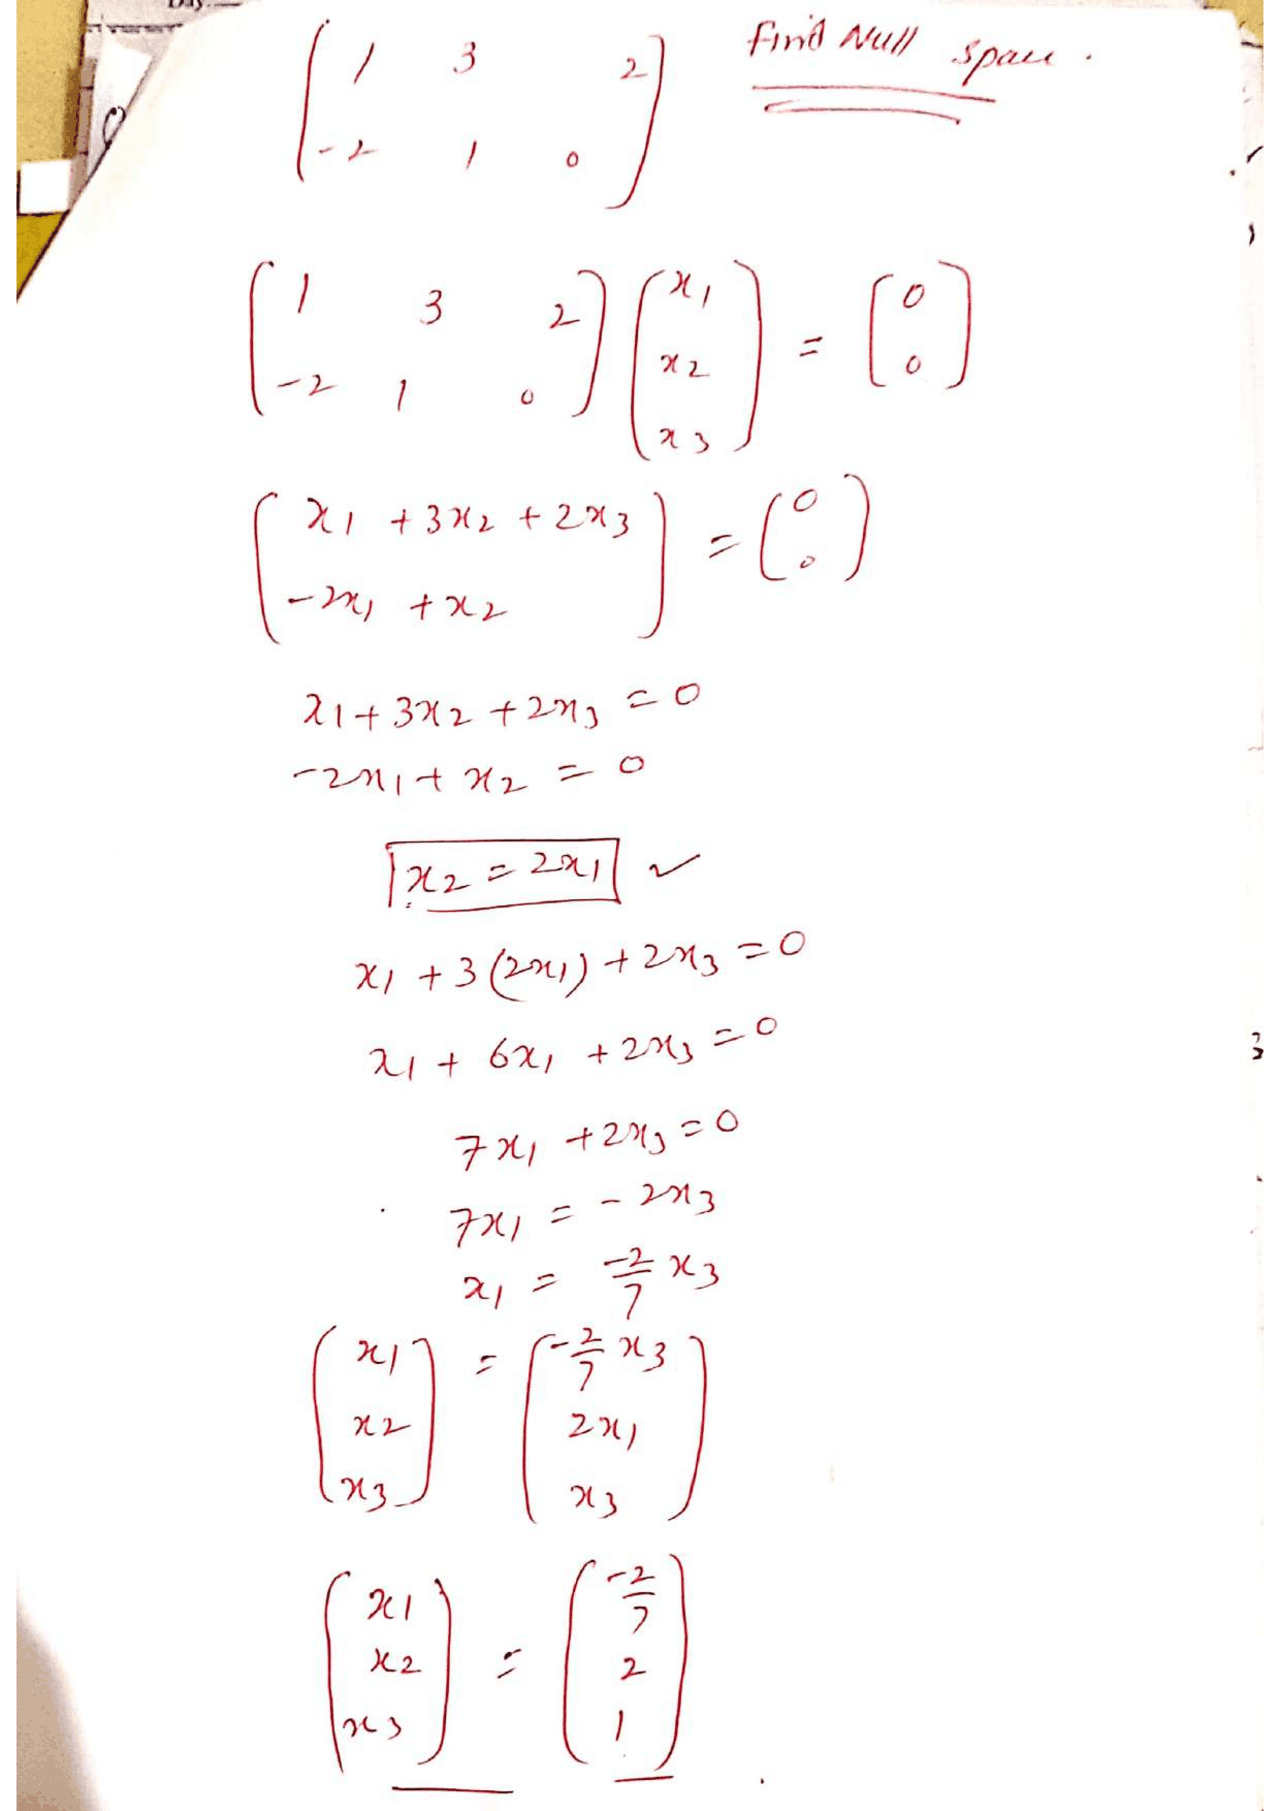 Day.
Find Null space.
( 1 3 2
-2 1 0 )
( 1 3 2
-2 1 0 ) ( x1
x2
x3 ) = ( 0
0 )
( x1 + 3x2 + 2x3
-2x1 + x2 ) = ( 0
0 )
x1 + 3x2 + 2x3 = 0
-2x1 + x2 = 0
x2 = 2x1 ✓
x1 + 3(2x1) + 2x3 = 0
x1 + 6x1 + 2x3 = 0
7x1 + 2x3 = 0
7x1 = -2x3
x1 = -2/7 x3
( x1
x2
x3 ) = ( -2/7 x3
2x1
x3 )
( x1
x2
x3 ) = ( -2/7
2
1 )